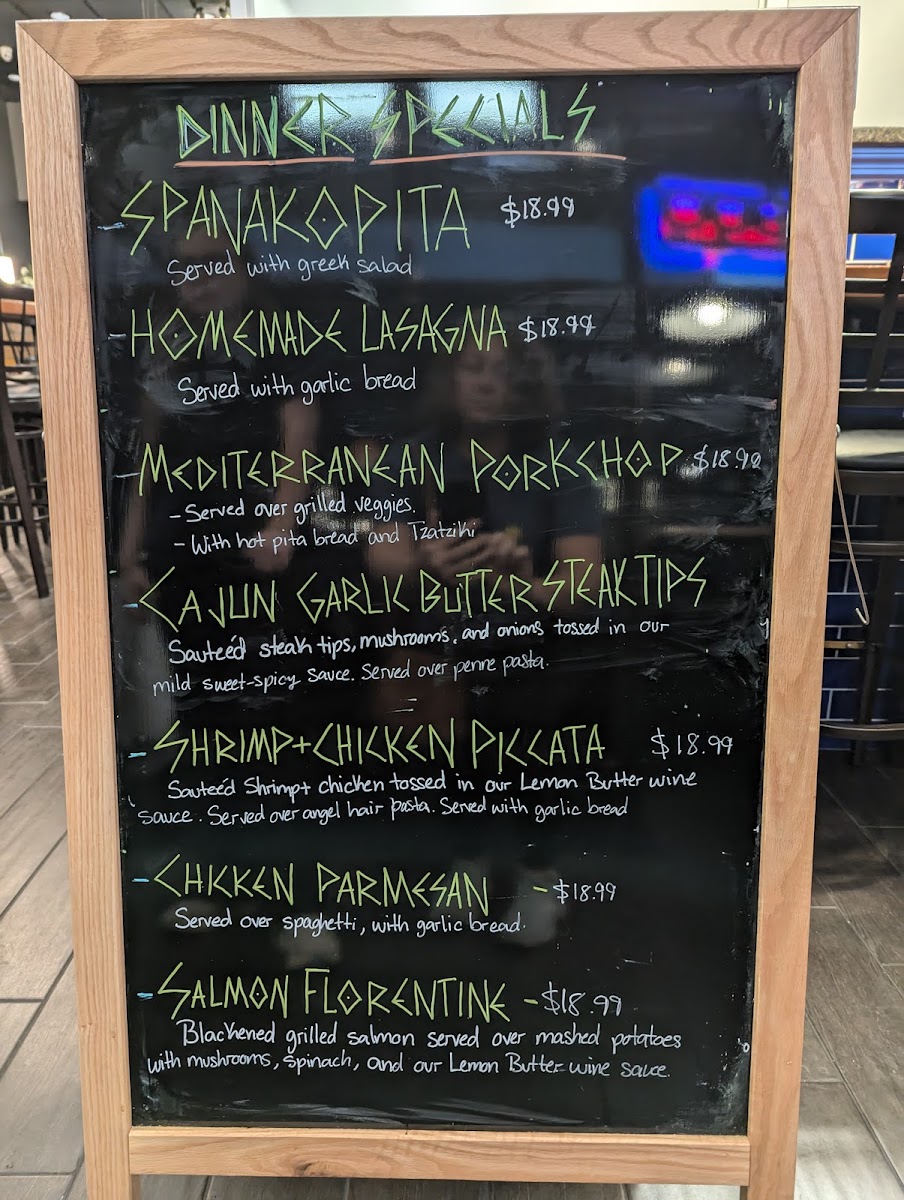 DINNER SPECIALS
- SPANAKOPITA $18.99
Served with greek salad
- HOMEMADE LASAGNA $18.99
Served with garlic bread
- MEDITERRANEAN PORKCHOP $18.99
- Served over grilled veggies.
- With hot pita bread and Tzatziki
- CAJUN GARLIC BUTTER STEAK TIPS
Sauteéd steak tips, mushrooms, and onions tossed in our
mild sweet-spicy sauce. Served over penne pasta.
- SHRIMP+CHICKEN PICCATA $18.99
Sauteéd Shrimp+ chicken tossed in our Lemon Butter wine
sauce. Served over angel hair pasta. Served with garlic bread
- CHICKEN PARMESAN - $18.99
Served over spaghetti, with garlic bread.
- SALMON FLORENTINE - $18.99
Blackened grilled salmon served over mashed potatoes
with mushrooms, spinach, and our Lemon Butter wine sauce.